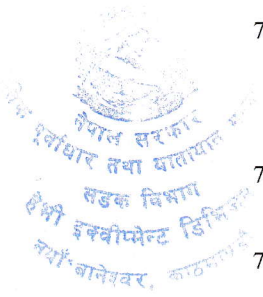 7
नेपाल सरकार
पूर्वाधार तथा यातायात
7
सडक विभाग
हेभी इक्वीपमेन्ट डिभिजन
7
नयाँ बानेश्वर,